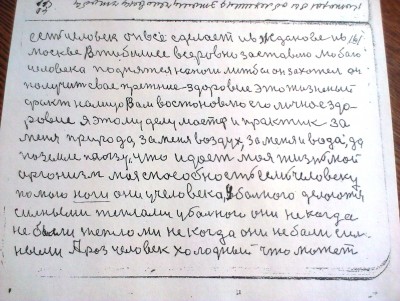 семь человек он всё сделает и в Жданове и в
Москве В тюбишее всеровно заставлю любого
человека поднятся на ноги лишбы он захотел он
получит свое прежние здоровие это жизненый
факт на лицо Вам востоновлю его личное здо-
ровие я этому делу мастер и практик за
меня природа, за меня воздух за меня и вода, да
почему я могу, что идает моя жизнь мой
организм моя способность семь человеку
помаю ноги они учеловека, убалного делоются
силными теплами убалного они некогда
не были тепло ми не когда они не бали сил-
ными А роз человек холодный что может